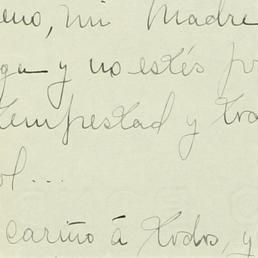 eno, mi Madre
y no estés
tempestad y
ol...
cariño á todos, y